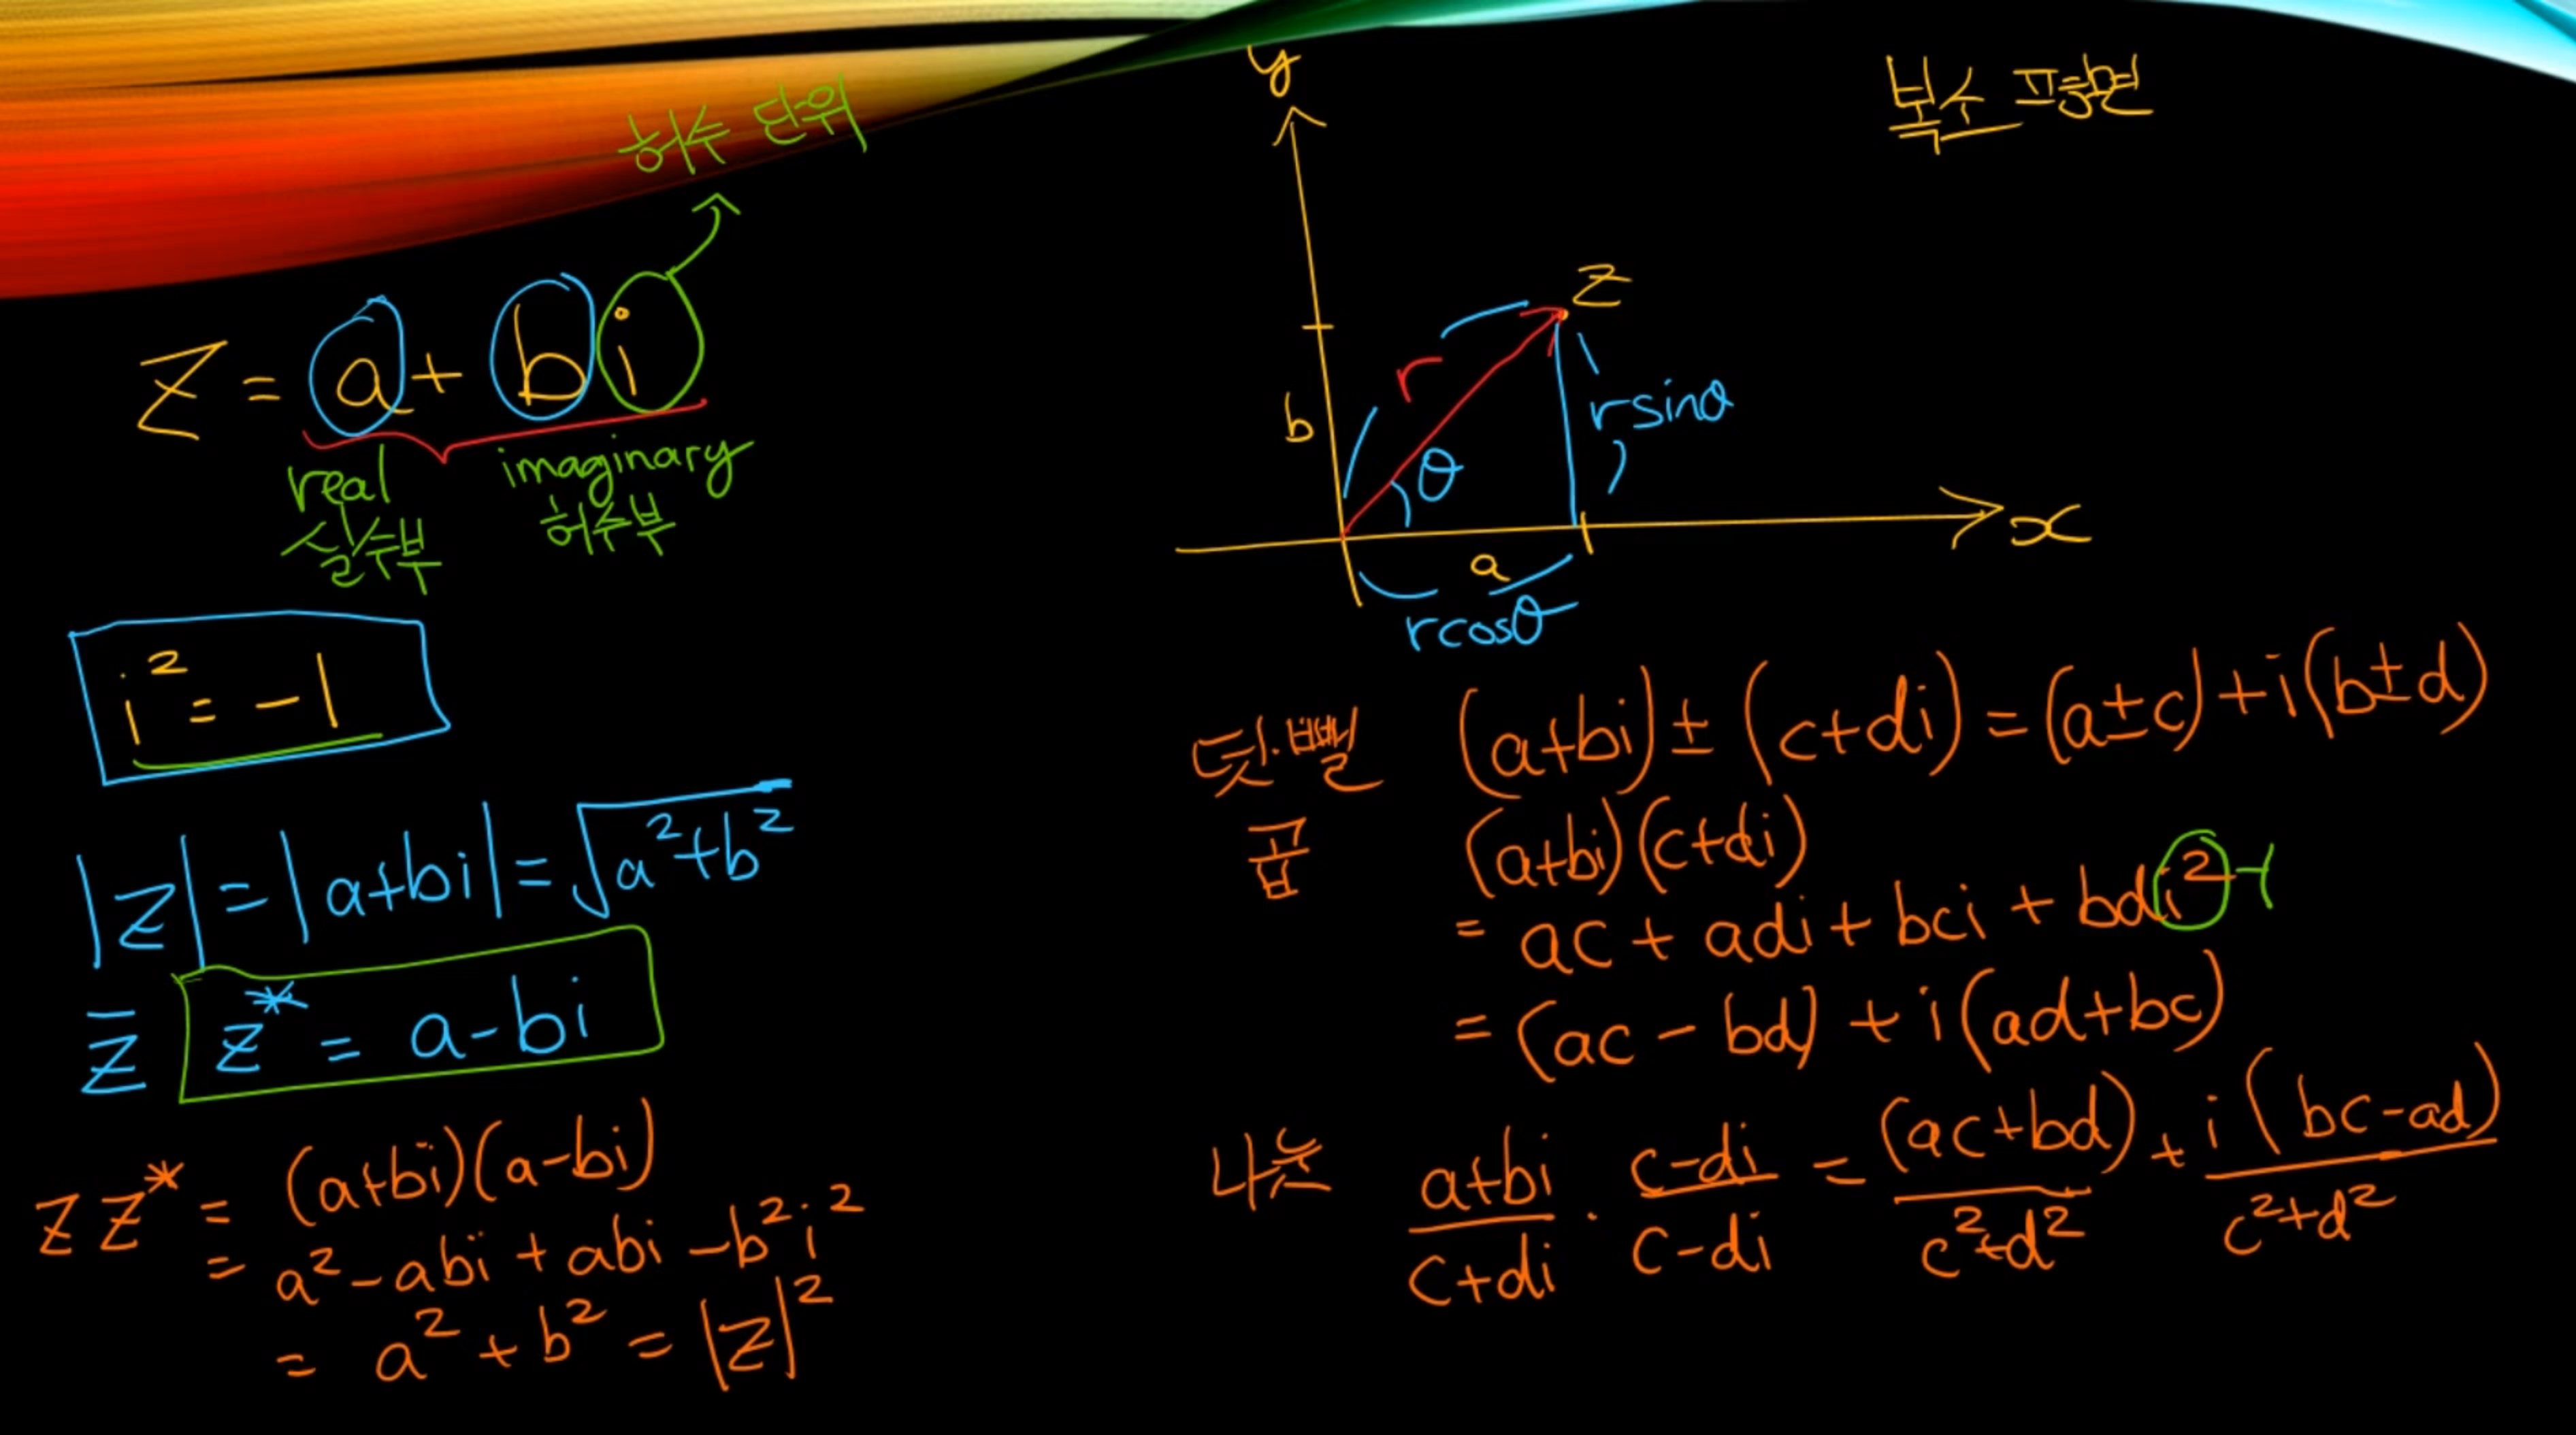 허수 단위
z = a + bi
real imaginary
실수부 허수부
i² = -1
|z| = |a+bi| = √(a²+b²)
z̄ z* = a-bi
zz* = (a+bi)(a-bi)
= a² - abi + abi - b²i²
= a² + b² = |z|²
복소 평면
y
z
r
rsinθ
b
θ
x
a
rcosθ
덧·뺄 (a+bi) ± (c+di) = (a±c) + i(b±d)
곱 (a+bi)(c+di)
= ac + adi + bci + bdi² -1
= (ac - bd) + i(ad+bc)
나눗 (a+bi)/(c+di) · (c-di)/(c-di) = (ac+bd)/(c²+d²) + i(bc-ad)/(c²+d²)